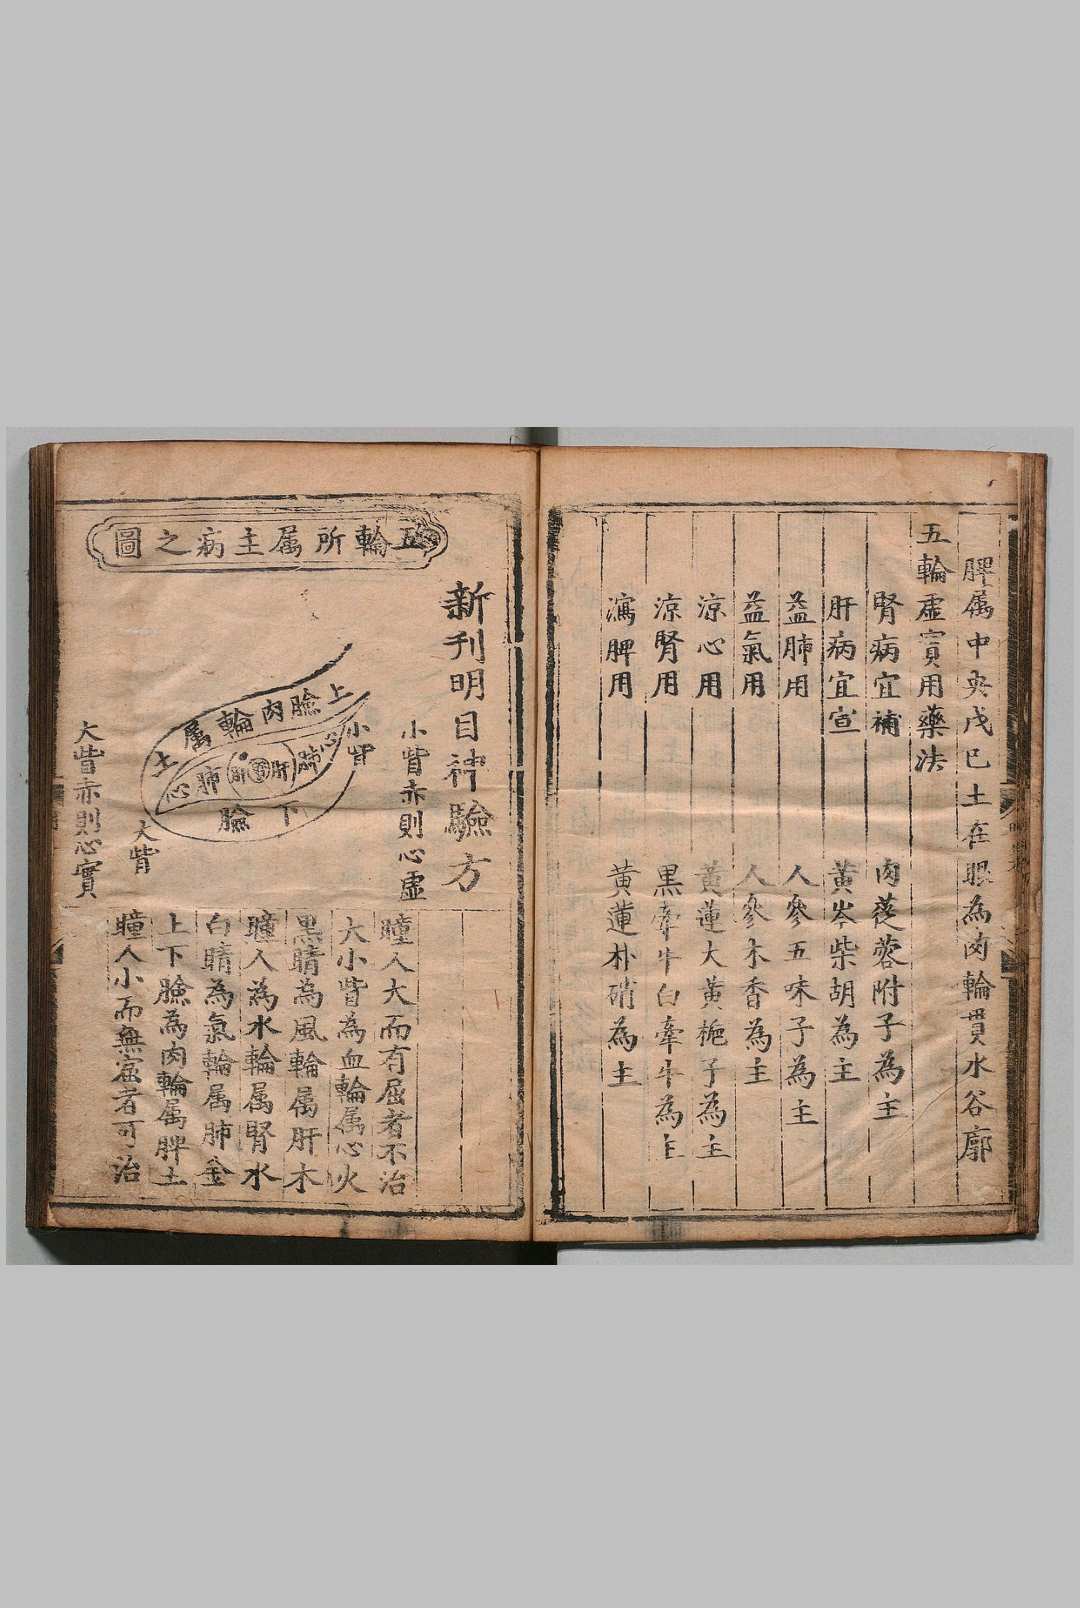 脾属中央戊巳土在眼為肉輪貫水谷廓
五輪虛實用藥法
腎病宜補 肉蓯蓉附子為主
肝病宜宣 黃岑柴胡為主
益肺用 人參五味子為主
益氣用 人參木香為主
凉心用 黃蓮大黃梔子為主
涼腎用 黑牽牛白牽牛為主
瀉脾用 黃蓮朴硝為主
新刊明目神驗方
五輪所属主病之圖
小眥赤則心虛
上臉肉輪属土
小眥
心肺肝腎肝肺心
下臉
大眥
大眥赤則心實
瞳人大而有屈者不治
大小眥為血輪属心火
黑睛為風輪属肝木
瞳人為水輪属腎水
白睛為氣輪属肺金
上下臉為肉輪属脾土
瞳人小而無屈者可治